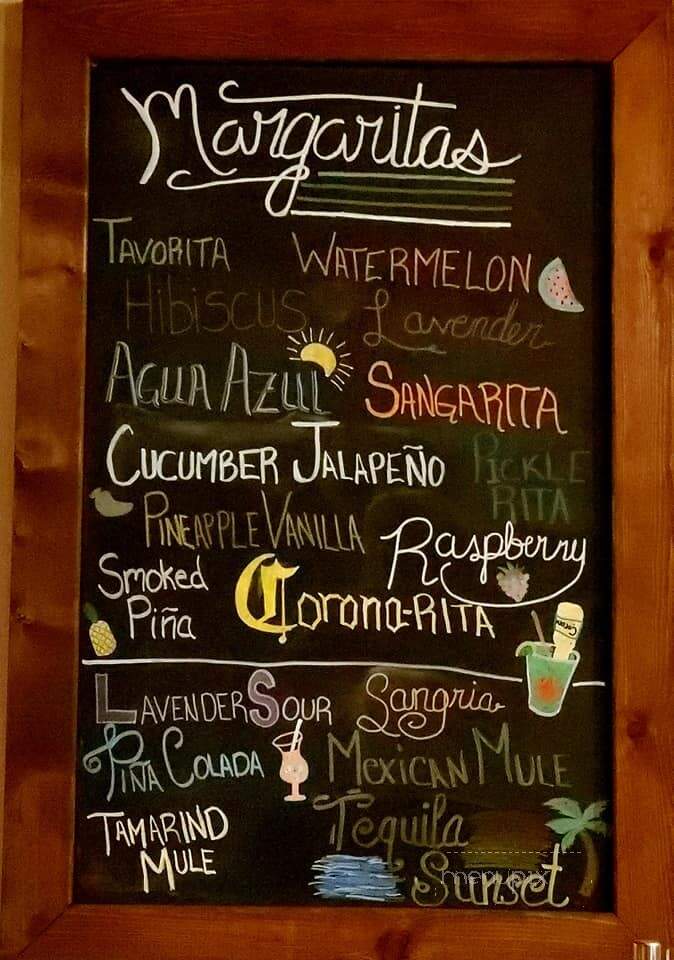 Margaritas
Tavorita Watermelon
Hibiscus Lavender
Agua Azul Sangarita
Cucumber Jalapeño Pickle
Rita
Pineapple Vanilla Raspberry
Smoked
Piña Corona-Rita
Corona
Lavender Sour Sangria
Piña Colada Mexican Mule
Tamarind
Mule Tequila
Sunset
menupix